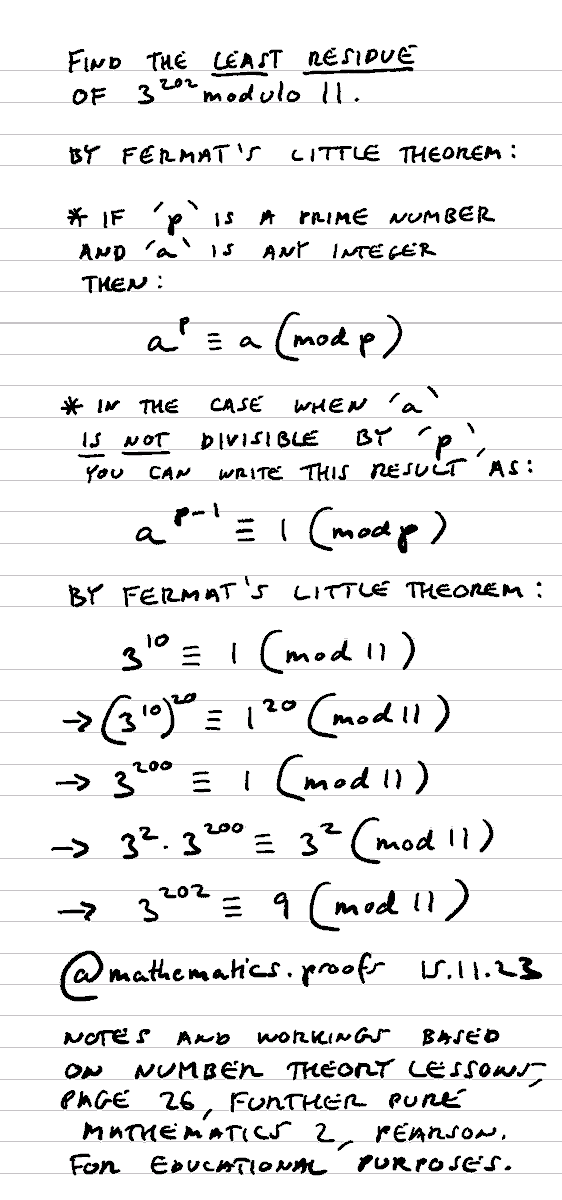 FIND THE LEAST RESIDUE
OF 3²⁰² modulo 11.
BY FERMAT'S LITTLE THEOREM:
* IF 'p' IS A PRIME NUMBER
AND 'a' IS ANY INTEGER
THEN:
aᵖ ≡ a (mod p)
* IN THE CASE WHEN 'a'
IS NOT DIVISIBLE BY 'p',
YOU CAN WRITE THIS RESULT AS:
aᵖ⁻¹ ≡ 1 (mod p)
BY FERMAT'S LITTLE THEOREM:
3¹⁰ ≡ 1 (mod 11)
→ (3¹⁰)²⁰ ≡ 1²⁰ (mod 11)
→ 3²⁰⁰ ≡ 1 (mod 11)
→ 3². 3²⁰⁰ ≡ 3² (mod 11)
→ 3²⁰² ≡ 9 (mod 11)
@mathematics.proofs 15.11.23
NOTES AND WORKINGS BASED
ON NUMBER THEORY LESSONS,
PAGE 26, FURTHER PURE
MATHEMATICS 2, PEARSON.
FOR EDUCATIONAL PURPOSES.